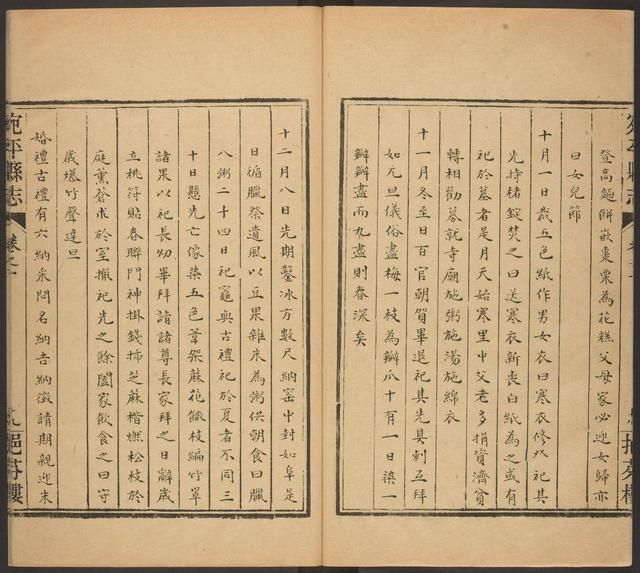 登高麵餅嵌棗栗為花糕父母家必迎女歸亦
曰女兒節
十月一日裁五色紙作男女衣曰寒衣修以祀其
先持楮錠焚之曰送寒衣新喪白紙為之或有
祀於墓者是月天始寒里中父老多捐資濟貧
轉相勸募就寺廟施粥施湯施綿衣
十一月冬至日百官朝賀畢退祀其先具刺互拜
如元旦儀俗畫梅一枝為瓣八十有一日染一
瓣瓣盡而九盡則春深矣
十二月八日先期鑿冰方數尺納窑中封如阜是
日循臘祭遺風以豆果雜米為粥供朝食曰臘
八粥二十四日祀竈與古禮祀於夏者不同三
十日懸先亡像染五色葦架蔴花餙枝編竹罩
諸果以祀長幼畢拜詣諸尊長家拜之日辭歲
立桃符貼春聯門神掛錢揷芝蔴楷燃松枝於
庭薰蒼朮於室撤祀先之餘闔家飲食之曰守
歲爆竹聲達旦
婚禮古禮有六納采問名納吉納徵請期親迎末
宛平縣志
卷之一